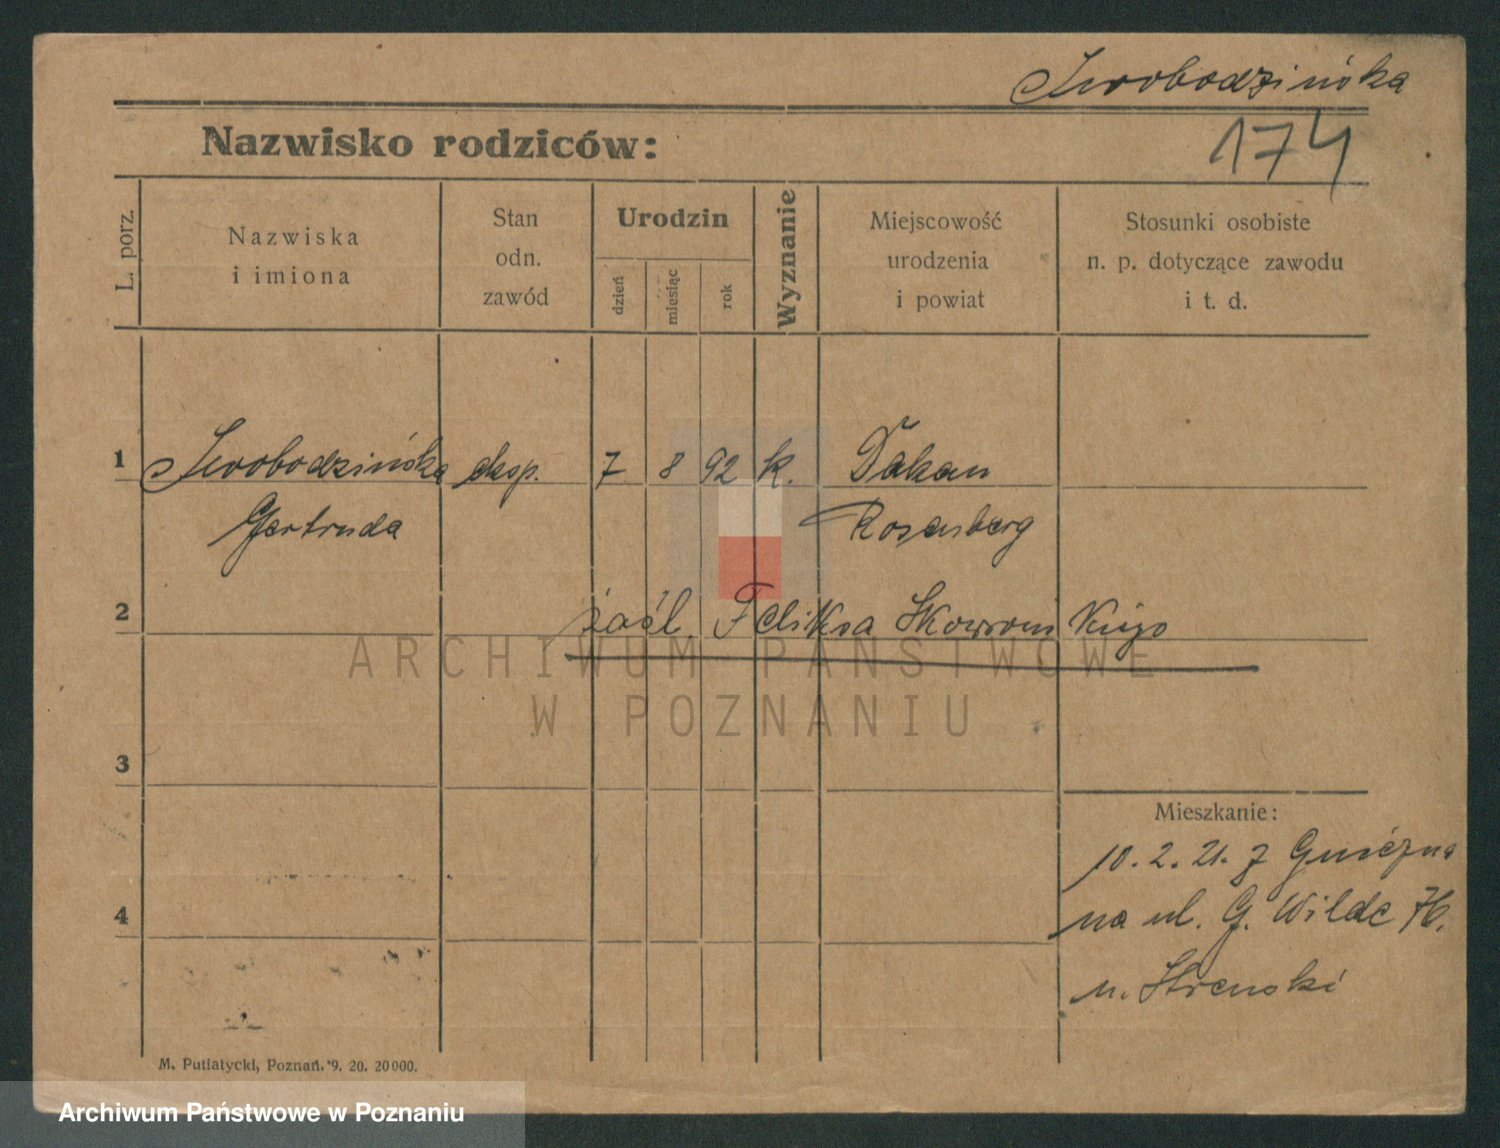 Swobodzińska
174
Nazwisko rodziców:
L. porz.
Nazwiska
i imiona
Stan
odn.
zawód
Urodzin
dzień
miesiąc
rok
Wyznanie
Miejscowość
urodzenia
i powiat
Stosunki osobiste
n. p. dotyczące zawodu
i t. d.
1 Swobodzińska eksp. 7 8 92 k.
Gertruda Rosenberg
2 zaśl. Feliksa Skowrońskiego
ARCHIWUM PAŃSTWOWE
W POZNANIU
3
Mieszkanie:
10. 2. 21. z Gniezna
4 na ul. G. Wilda 76.
u.
M. Putiatycki, Poznań. 9. 20. 20000.
Archiwum Państwowe w Poznaniu